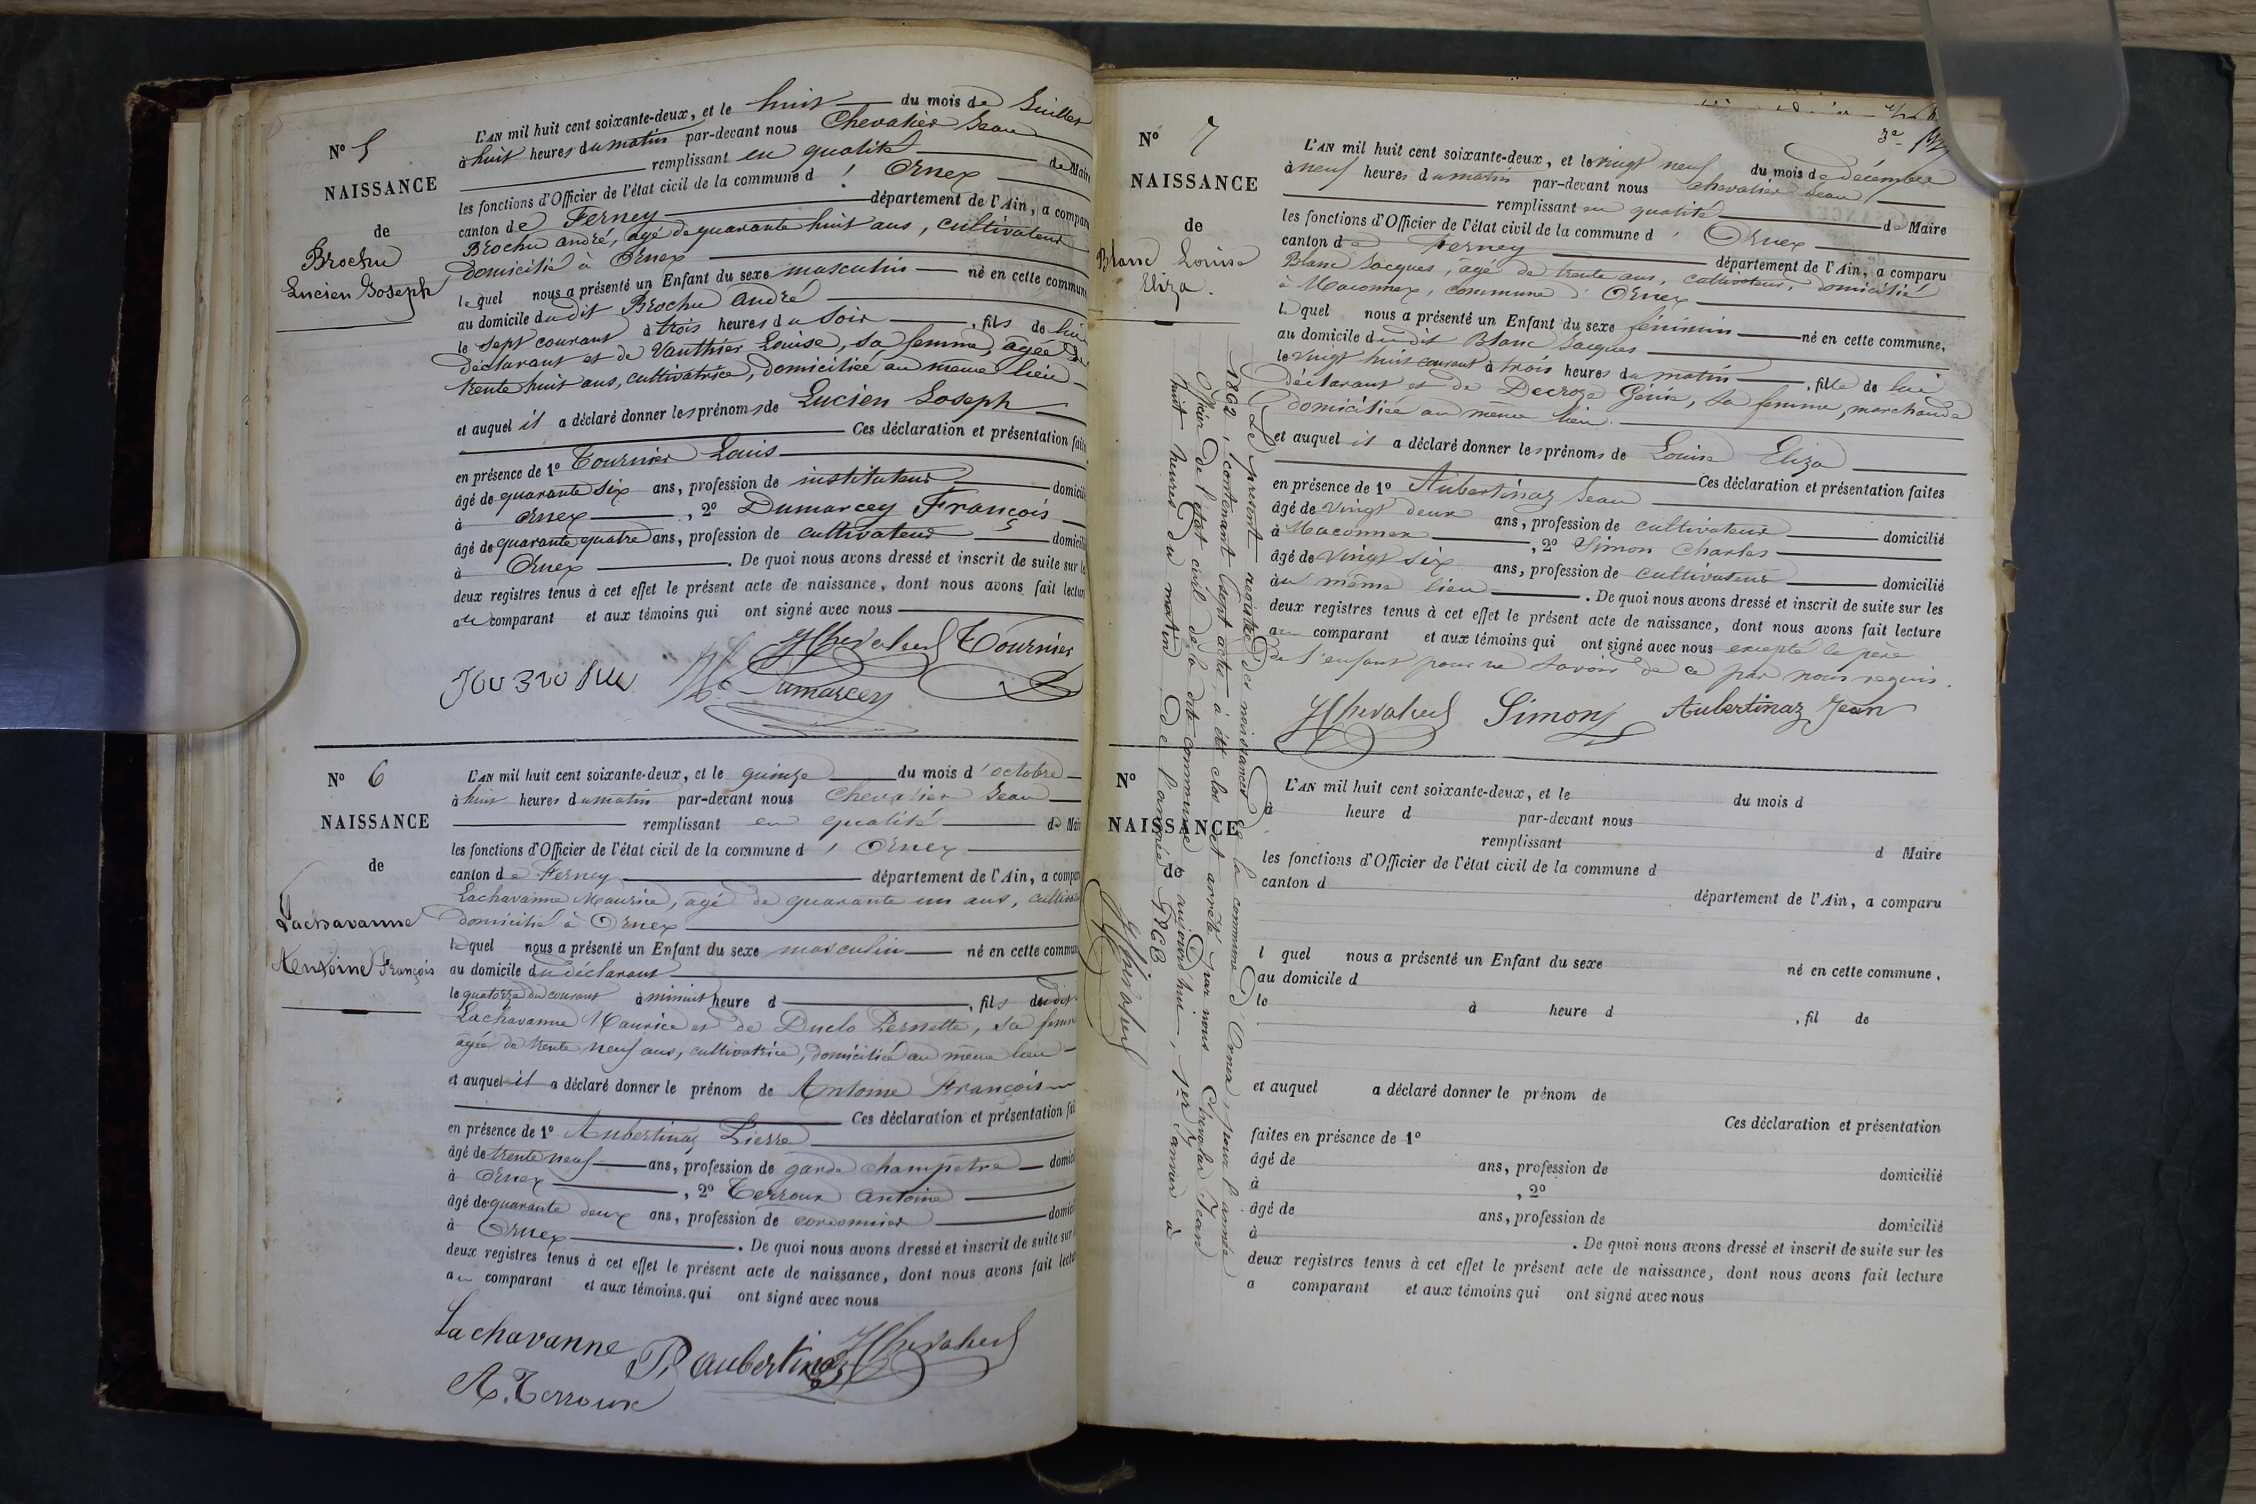 N° 5
NAISSANCE
de
Brochu
Lucien Joseph
L'AN mil huit cent soixante-deux, et le huit du mois de Juillet
à huit heures du matin par-devant nous Chevalier Jean
remplissant en qualité de Maire
les fonctions d'Officier de l'état civil de la commune d' Ornex
canton de Ferney département de l'Ain, a comparu
Brochu andré, âgé de quarante huit ans, cultivateur
domicilié à Ornex
lequel nous a présenté un Enfant du sexe masculin né en cette commune
au domicile dudit Brochu André
le sept courant à trois heures du soir, fils de lui
déclarant et de Vauthier Louise, sa femme, âgée de
trente huit ans, cultivatrice, domiciliée au même lieu
et auquel il a déclaré donner les prénoms de Lucien Joseph
Ces déclaration et présentation faites
en présence de 1° Tournier Louis
âgé de quarante six ans, profession de instituteur domicilié
à Ornex, 2° Dumarcey François
âgé de quarante quatre ans, profession de cultivateur domicilié
à Ornex. De quoi nous avons dressé et inscrit de suite sur les
deux registres tenus à cet effet le présent acte de naissance, dont nous avons fait lecture
au comparant et aux témoins qui ont signé avec nous
JChevalier Tournier
Dumarcey
N° 6
NAISSANCE
de
Lachavanne
Antoine François
L'AN mil huit cent soixante-deux, et le quinze du mois d'octobre
à huit heures du matin par-devant nous Chevalier Jean
remplissant en qualité de Maire
les fonctions d'Officier de l'état civil de la commune d' Ornex
canton de Ferney département de l'Ain, a comparu
Lachavanne Maurice, âgé de quarante un ans, cultivateur
domicilié à Ornex
lequel nous a présenté un Enfant du sexe masculin né en cette commune
au domicile du déclarant
le quatorze du courant à minuit heure d, fils dudit
Lachavanne Maurice et de Duclo Pernette, sa femme
âgée de trente neuf ans, cultivatrice, domiciliée au même lieu
et auquel il a déclaré donner le prénom de Antoine François
Ces déclaration et présentation fai
en présence de 1° Aubertinaz Pierre
âgé de trente neuf ans, profession de garde champêtre domicilié
à Ornex, 2° Terroux Antoine
âgé de quarante deux ans, profession de cordonnier domicilié
à Ornex. De quoi nous avons dressé et inscrit de suite sur
deux registres tenus à cet effet le présent acte de naissance, dont nous avons fait lecture
au comparant et aux témoins qui ont signé avec nous
Lachavanne P. Aubertinaz JChevalier
A. Terroux
N° 7
NAISSANCE
de
Blanc Louise
Eliza.
L'AN mil huit cent soixante-deux, et le vingt neuf du mois de décembre
à neuf heures du matin par-devant nous Chevalier Jean
remplissant en qualité de Maire
les fonctions d'Officier de l'état civil de la commune d' Ornex
canton de Ferney département de l'Ain, a comparu
Blanc Jacques, âgé de trente ans, cultivateur, domicilié
à Maconnex, commune d'Ornex
lequel nous a présenté un Enfant du sexe féminin né en cette commune,
au domicile dudit Blanc Jacques
le vingt huit courant à trois heures du matin, fille de lui
déclarant et de Decroze Génie, sa femme, marchande
domiciliée au même lieu.
et auquel il a déclaré donner les prénoms de Louise Eliza
Ces déclaration et présentation faites
en présence de 1° Aubertinaz Jean
âgé de vingt deux ans, profession de cultivateur domicilié
à Maconnex, 2° Simon Charles
âgé de vingt six ans, profession de cultivateur domicilié
au même lieu. De quoi nous avons dressé et inscrit de suite sur les
deux registres tenus à cet effet le présent acte de naissance, dont nous avons fait lecture
au comparant et aux témoins qui ont signé avec nous excepté le père
de l'enfant pour ne savoir de ce par nous requis.
JChevalier Simon Aubertinaz Jean
Le présent registre des naissances de la commune d'Ornex, pour l'année
1862, contenant sept actes, a été clos et arrêté par nous Chevalier Jean
Officier de l'état civil de la dite commune aujourd'hui, 1er Janvier à
huit heures du matin de l'année 1863
JChevalier
N°
NAISSANCE
de
L'AN mil huit cent soixante-deux, et le du mois d
à heure d par-devant nous
remplissant d Maire
les fonctions d'Officier de l'état civil de la commune d
canton d département de l'Ain, a comparu
l quel nous a présenté un Enfant du sexe né en cette commune,
au domicile d
le à heure d, fil de
et auquel a déclaré donner le prénom de
Ces déclaration et présentation
faites en présence de 1°
âgé de ans, profession de domicilié
à, 2°
âgé de ans, profession de domicilié
à. De quoi nous avons dressé et inscrit de suite sur les
deux registres tenus à cet effet le présent acte de naissance, dont nous avons fait lecture
a comparant et aux témoins qui ont signé avec nous